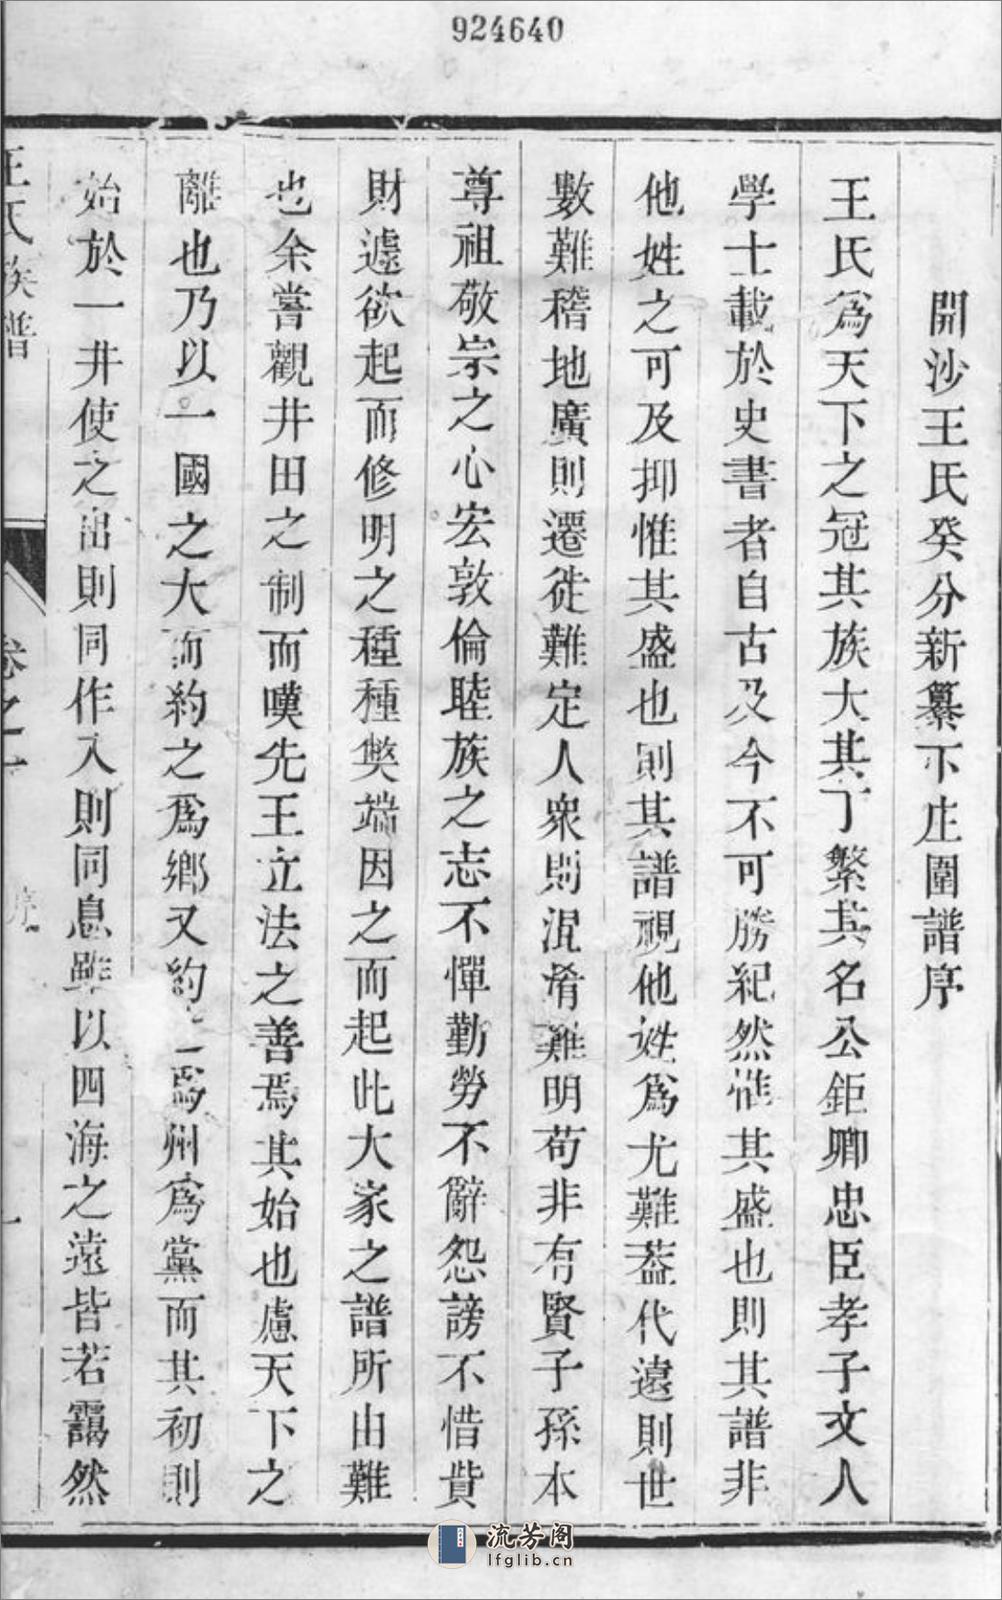 924640
開沙王氏癸分新纂下庄圍譜序
王氏爲天下之冠其族大其丁繁其名公鉅卿忠臣孝子文人
學士載於史書者自古及今不可勝紀然惟其盛也則其譜非
他姓之可及抑惟其盛也則其譜視他姓爲尤難葢代遠則世
數難稽地廣則遷徙難定人衆則混淆難明苟非有賢子孫本
尊祖敬宗之心宏敦倫睦族之志不憚勤勞不辭怨謗不惜貲
財遽欲起而修明之種種獘端因之而起此大家之譜所由難
也余嘗觀井田之制而嘆先王立法之善焉其始也慮天下之
離也乃以一國之大而約之爲鄉又約之爲州爲黨而其初則
始於一井使之出則同作入則同息雖以四海之遠皆若靄然
王氏族譜
卷之一
序
一
流芳阁
lfglib.cn